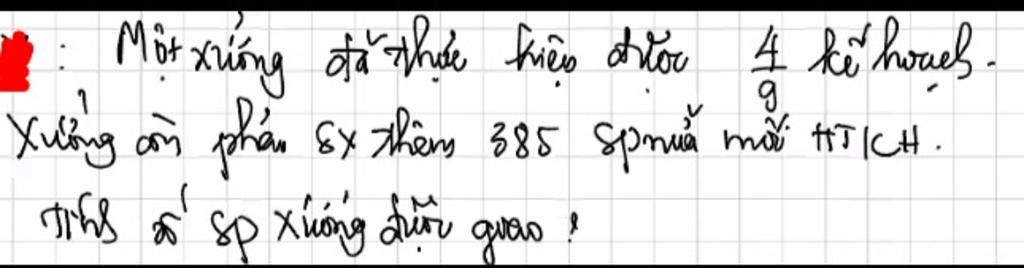 : Một xưởng đã thực hiện được 4/9 kế hoạch.
Xưởng còn phải sx thêm 385 sp nữa mới HTKH.
Tính số sp xưởng được giao?